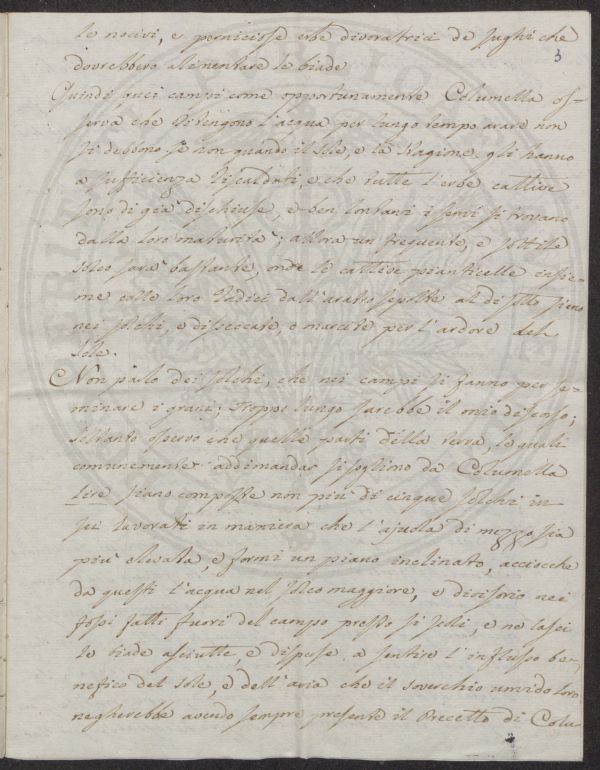 le nocivi, e perniciose erbe divoratrici de sughi che
3
dovrebbero alimentare le biade
Quindi quei campi come opportunamente Columella os-
serva che ritengono l'acqua per lungo tempo arare non
si debbono se non quando il Sole, e la Stagione gli hanno
a sufficienza riscaldati, e che tutte l'erbe cattive
sono di già dischiuse, e ben lontani i semi si trovano
dalla loro maturità; allora un frequente, e sottile
solco sarà bastante, onde le cattive pianticelle insie-
me colle loro radici dall'aratro sepolte al di sotto siano
nei solchi, e disseccate, o marcite per l'ardore del
Sole.
Non parlo dei solchi, che nei campi si fanno per se-
minare i grani; troppo lungo sarebbe il mio discorso;
soltanto osservo che quelle parti della terra, le quali
comunemente addimandar si sogliono da Columella
Lire siano composte non più di cinque solchi in
sei lavorati in maniera che l'ajuola di mezzo sia
più elevata, e formi un piano inclinato, acciocchè
da questi l'acqua nel solco maggiore, e divisorio nei
fossi fatti fuori del campo presto si scoli, e ne lasci
le biade asciutte, e disposte a sentire l'influsso be-
nefico del sole, e dell'aria che il soverchio umido loro
negherebbe avendo sempre presente il Precetto di Colu-